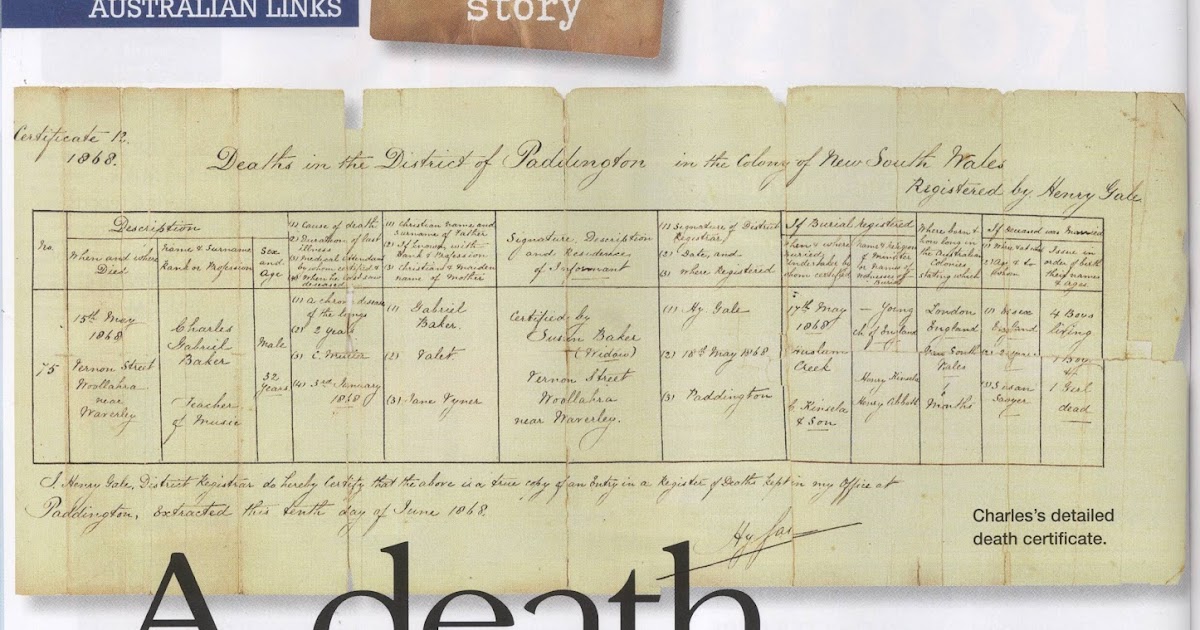 AUSTRALIAN LINKS
story
Certificate 12.
1868.
Deaths in the District of Paddington in the Colony of New South Wales
Registered by Henry Gale
No.
Description
When and where
Died
Name & Surname
Rank or Profession
Sex
and
Age
(1) Cause of death
(2) Duration of last
illness
(3) Medical attendant
by whom certified &
(4) When he last saw
deceased
(1) Christian name and
Surname of Father
(2) If known, with
Rank & Profession
(3) Christian & maiden
name of Mother
Signature, Description
and Residence
of Informant
(1) Signature of District
Registrar
(2) Date, and
(3) Where Registered
If Burial Registered
When & where
Buried
Undertaker by
whom certified
Name & Religion
of Minister
or Names of
witnesses of
Burial
Where born &
how long in
the Australian
Colonies
stating which
If Deceased was Married
(1) Where &
(2) Age, & to
whom
Issue in
order of birth
their names
& Ages
75
15th May
1868
Vernon Street
Woollahra
near
Waverley
Charles
Gabriel
Baker
Teacher
of Music
Male
32
Years
(1) A chronic disease
of the lungs
(2) 2 years
(3) C.
(4) 3rd January
1868
(1) Gabriel
Baker.
(2) Valet
(3) Jane Vyner
Certified by
Susan Baker
(Widow)
Vernon Street
Woollahra
near Waverley.
(1) Hy Gale
(2) 18th May 1868
(3) Paddington
17th May
1868
Haslam
Creek
C. Kinsela
& Son
— Young
Ch of England
Henry Kinsela
Henry Abbott
London
England
New South
Wales
Months
(1) Essex
England
(2)
(3) Susan
Sawyer
4 Boys
living
1 Boy
&
1 Girl
dead
I, Henry Gale, District Registrar do hereby Certify that the above is a true copy of an Entry in a Register of Deaths kept in my Office at
Paddington, Extracted this tenth day of June 1868.
Hy Gale
Charles's detailed
death certificate.
A death